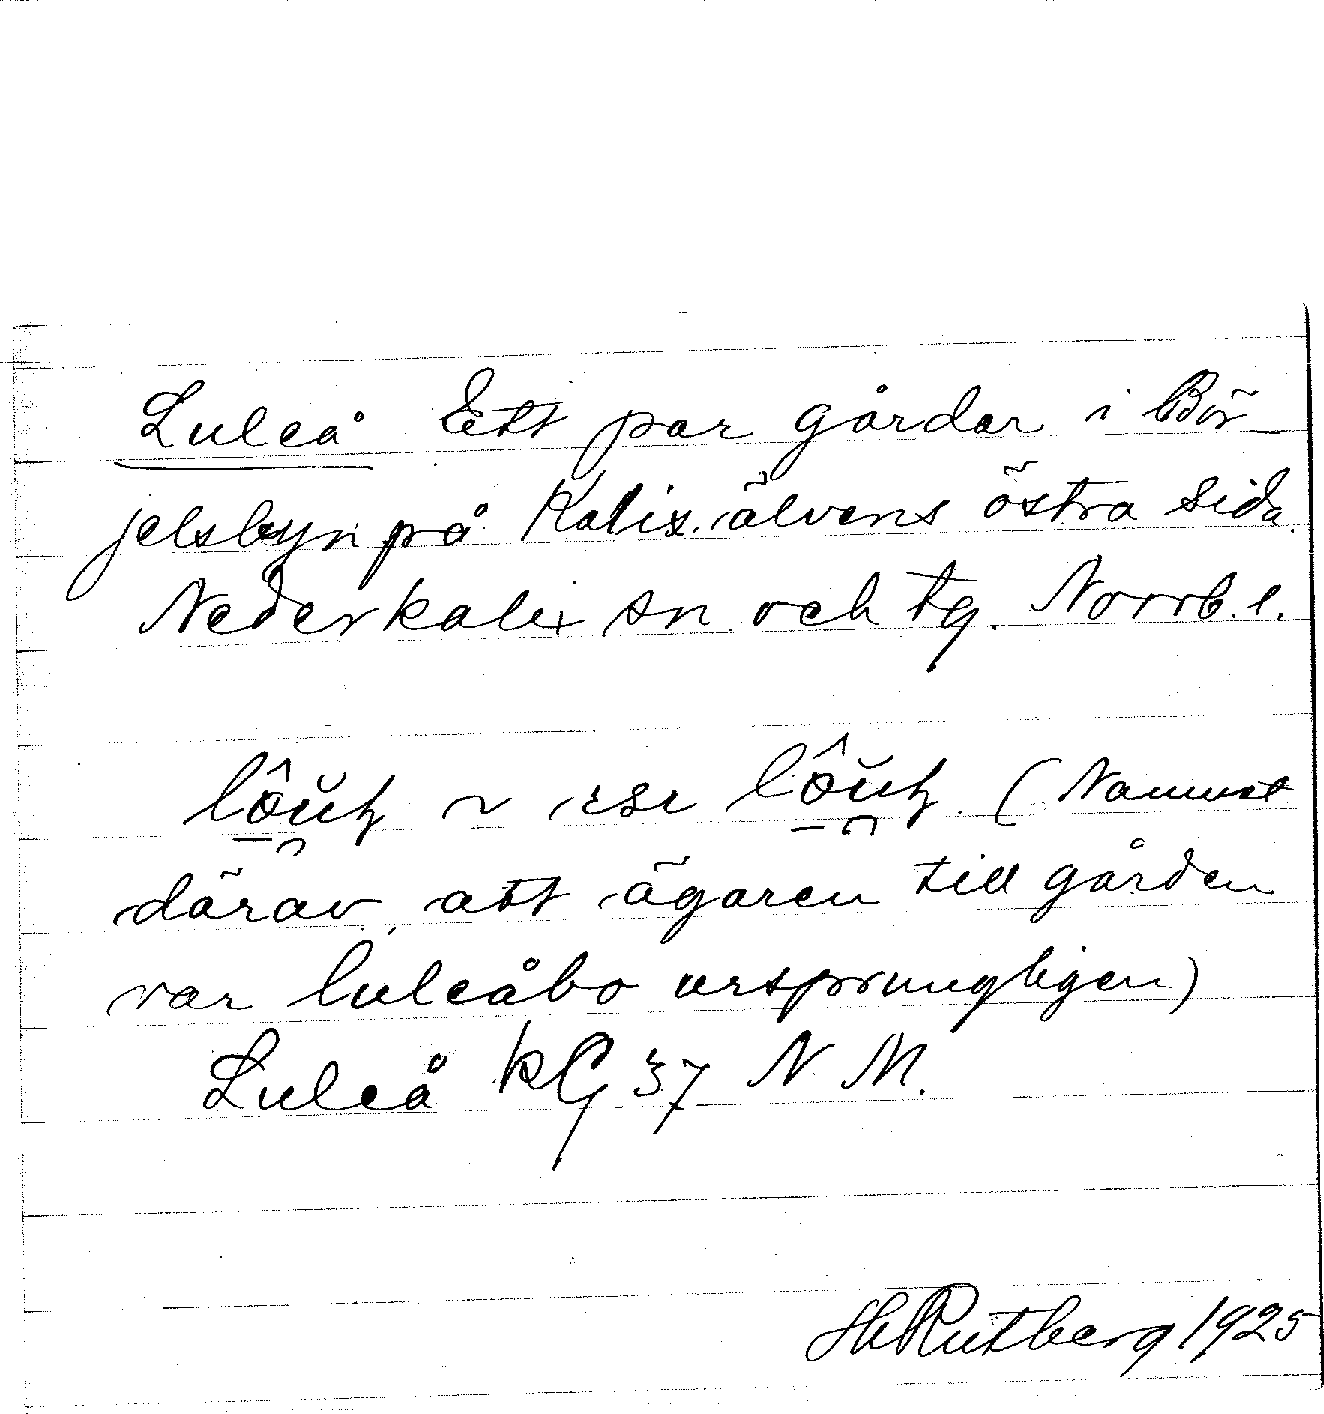 Luleå Ett par gårdar i Bör-
jelsbyn på Kalix. älvens östra sida.
Nederkalix sn och tg. Norrb. l.
(Namnet
därav, att ägaren till gården
var luleåbo ursprungligen)
Luleå KG 37 N M.
H Rutberg 1925